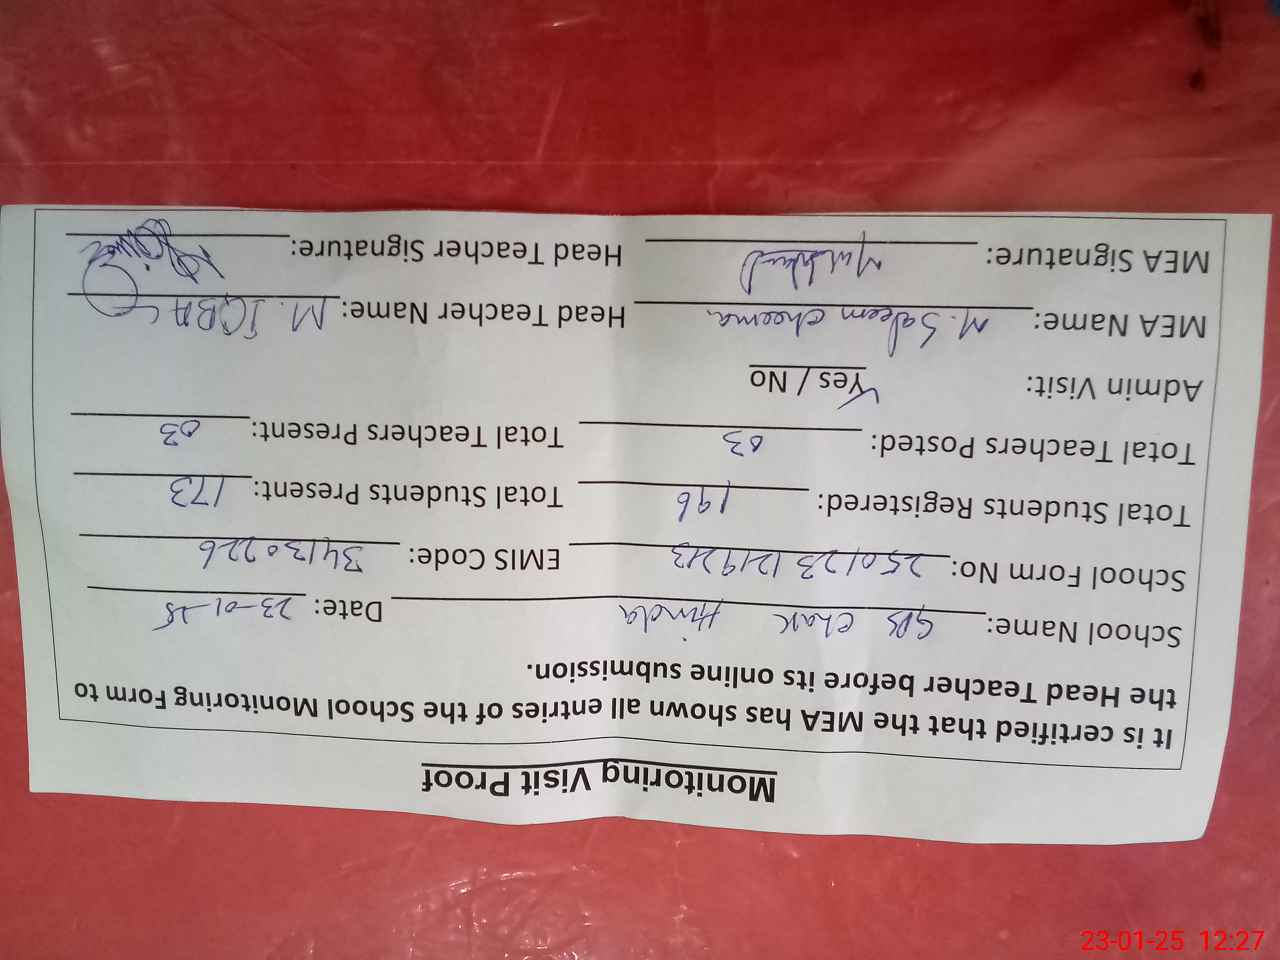 Monitoring Visit Proof
It is certified that the MEA has shown all entries of the School Monitoring Form to
the Head Teacher before its online submission.
School Name: GPS Chak Hinda Date: 23-01-25
School Form No: 250123121923 EMIS Code: 34130226
Total Students Registered: 196 Total Students Present: 173
Total Teachers Posted: 03 Total Teachers Present: 03
Admin Visit: Yes / No
MEA Name: M. Saleem cheema. Head Teacher Name: M. IQBAL
MEA Signature: Head Teacher Signature:
23-01-25 12:27